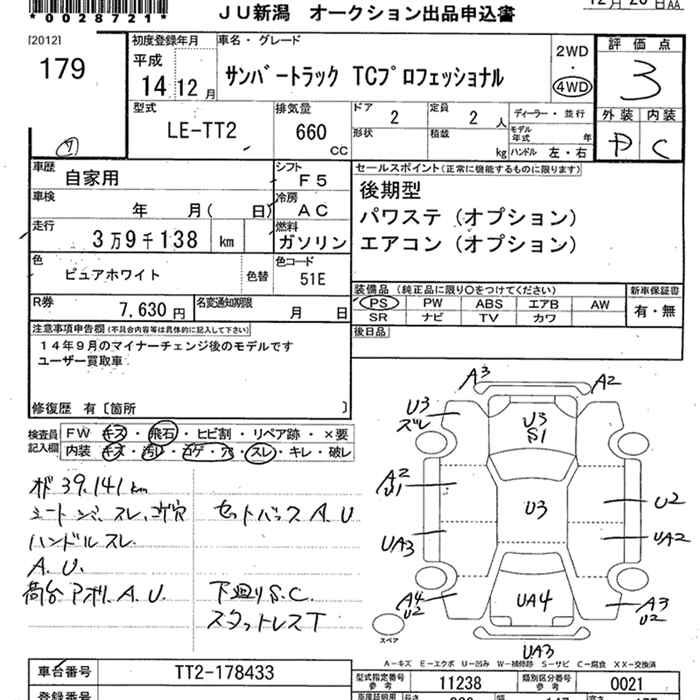 *0028721*
JU新潟 オークション出品申込書
[2012]
179
初度登録年月
平成
14 12 月
車名・グレード
サンバートラック TCプロフェッショナル
2WD
・
4WD
評価点
3
外装 内装
D C
型式
LE-TT2
排気量
660
CC
ドア
2
定員
2 人
ディーラー・並行
形状
積載
kg
モデル年式 年
ハンドル 左・右
車歴
自家用
シフト
F5
車検
年 月( 日)
冷房
AC
走行
3万9千138 km
燃料
ガソリン
色
ピュアホワイト
色替
色コード
51E
R券
7,630 円
名変通知期限
月 日
セールスポイント(正常に機能するものに限ります)
後期型
パワステ(オプション)
エアコン(オプション)
装備品(純正品に限り○をつけてください)
PS PW ABS エアB AW
SR ナビ TV カワ
新車保証書
有・無
後日品
注意事項申告欄(不具合内容等は具体的に記入して下さい)
14年9月のマイナーチェンジ後のモデルです
ユーザー買取車
修復歴 有〔箇所 〕
検査員記入欄
FW キズ・飛石・ヒビ割・リペア跡・×要
内装 キズ・汚レ・コゲ・穴・スレ・キレ・破レ
39.141km
ハンドルスレ
A.U.
荷台 A.U.
セットバックA.U
下廻りS.C.
スタットレスT
A3
A2
U3
ズレ
U3
S1
A2
U1
U3
U2
UA3
UA2
A4
U2
UA4
A3
U2
UA3
スペア
A-キズ E-エクボ U-凹み W-補修跡 S-サビ C-腐食 XX-交換済
車台番号
TT2-178433
型式指定番号
参考
11238
類別区分番号
参考
0021
登録番号